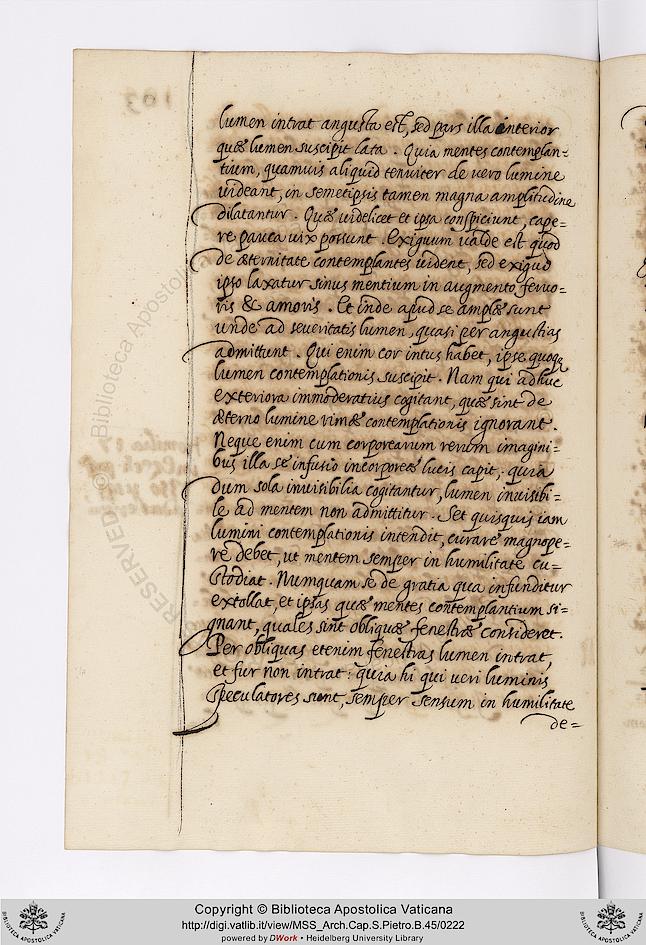 lumen intrat angusta est, sed pars illa interior
quæ lumen suscipit lata. Quia mentes contemplan=
tium, quamuis aliquid tenuiter de uero lumine
uideant, in semetipsis tamen magna amplitudine
dilatantur. Quæ uidelicet et ipsa conspiciunt, cape=
re pauca uix possunt. Exiguum ualde est quod
de æternitate contemplantes uident, sed exiguo
ipso laxatur sinus mentium in augmento feruo=
ris & amoris. Et inde apud se amplæ sunt
unde ad seueritatis lumen, quasi per angustias
admittunt. Qui enim cor intus habet, ipse quoq
lumen contemplationis suscipit. Nam qui adhuc
exteriora immoderatius cogitant, quæ sint de
æterno lumine rimæ contemplationis ignorant.
Neque enim cum corporearum rerum imagini=
bus illa se infusio incorporeæ lucis capit; quia
dum sola inuisibilia cogitantur, lumen inuisibi=
le ad mentem non admittitur. Set quisquis iam
lumini contemplationis intendit, curare magnope=
re debet, ut mentem semper in humilitate cu=
stodiat. Numquam se de gratia qua infunditur
extollat, et ipsas quæ mentes contemplantium si=
gnant, quales sint obliquæ fenestræ consideret.
Per obliquas etenim fenestras lumen intrat,
et fur non intrat: quia hi qui ueri luminis
speculatores sunt, semper sensum in humilitate
de=
Copyright © Biblioteca Apostolica Vaticana
http://digi.vatlib.it/view/MSS_Arch.Cap.S.Pietro.B.45/0222
powered by DWork • Heidelberg University Library